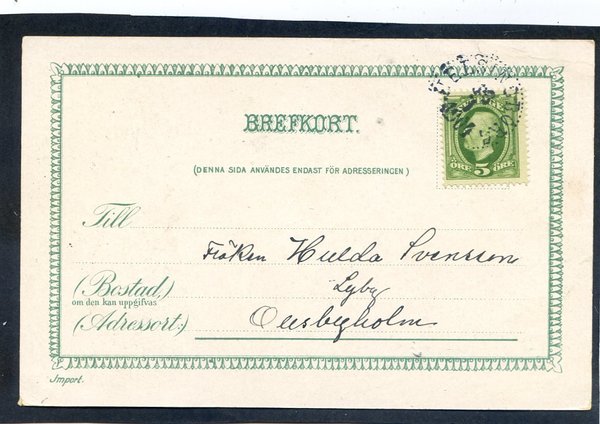 BREFKORT.
(DENNA SIDA ANVÄNDES ENDAST FÖR ADRESSERINGEN)
ÖRE 5 ÖRE
Till
Fröken Hulda Svensson
Lyby
(Bostad,)
om den kan uppgifvas
(Adressort:)
Import.